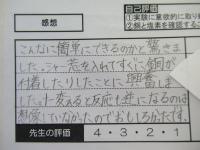 感想
自己評価
①実験に意欲的に取り
②銅と塩素を確認する
こんなに簡単にできるのかと驚きま
した。シャー芯を入れてすぐに銅が
付着したりしたことに興奮しま
した。＋−変えると反応も逆になるのは
想像していなかったのでおもしろかったです。
先生の評価
4・3・2・1